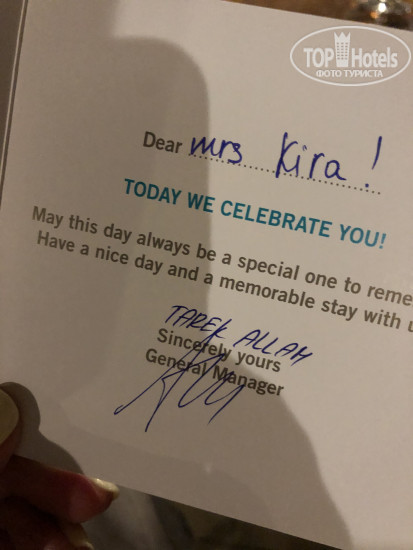 TOP Hotels
ФОТО ТУРИСТА
Dear mrs Kira!
TODAY WE CELEBRATE YOU!
May this day always be a special one to reme
Have a nice day and a memorable stay with u
TAREK ALLAM
Sincerely yours
General Manager